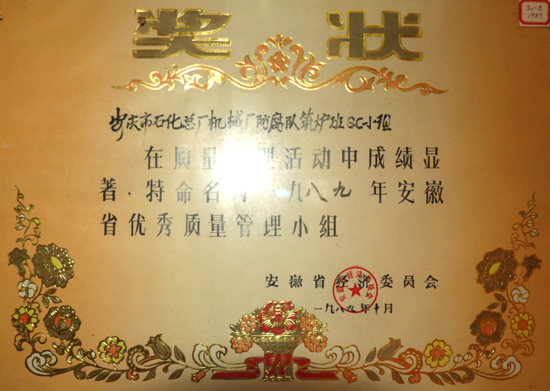 奖状
31-8
1989
安庆市石化总厂机械厂防腐队筑炉班QC小组
在质量管理活动中成绩显
著.特命名为一九八九年安徽
省优秀质量管理小组
安徽省经济委员会
一九八九年十月